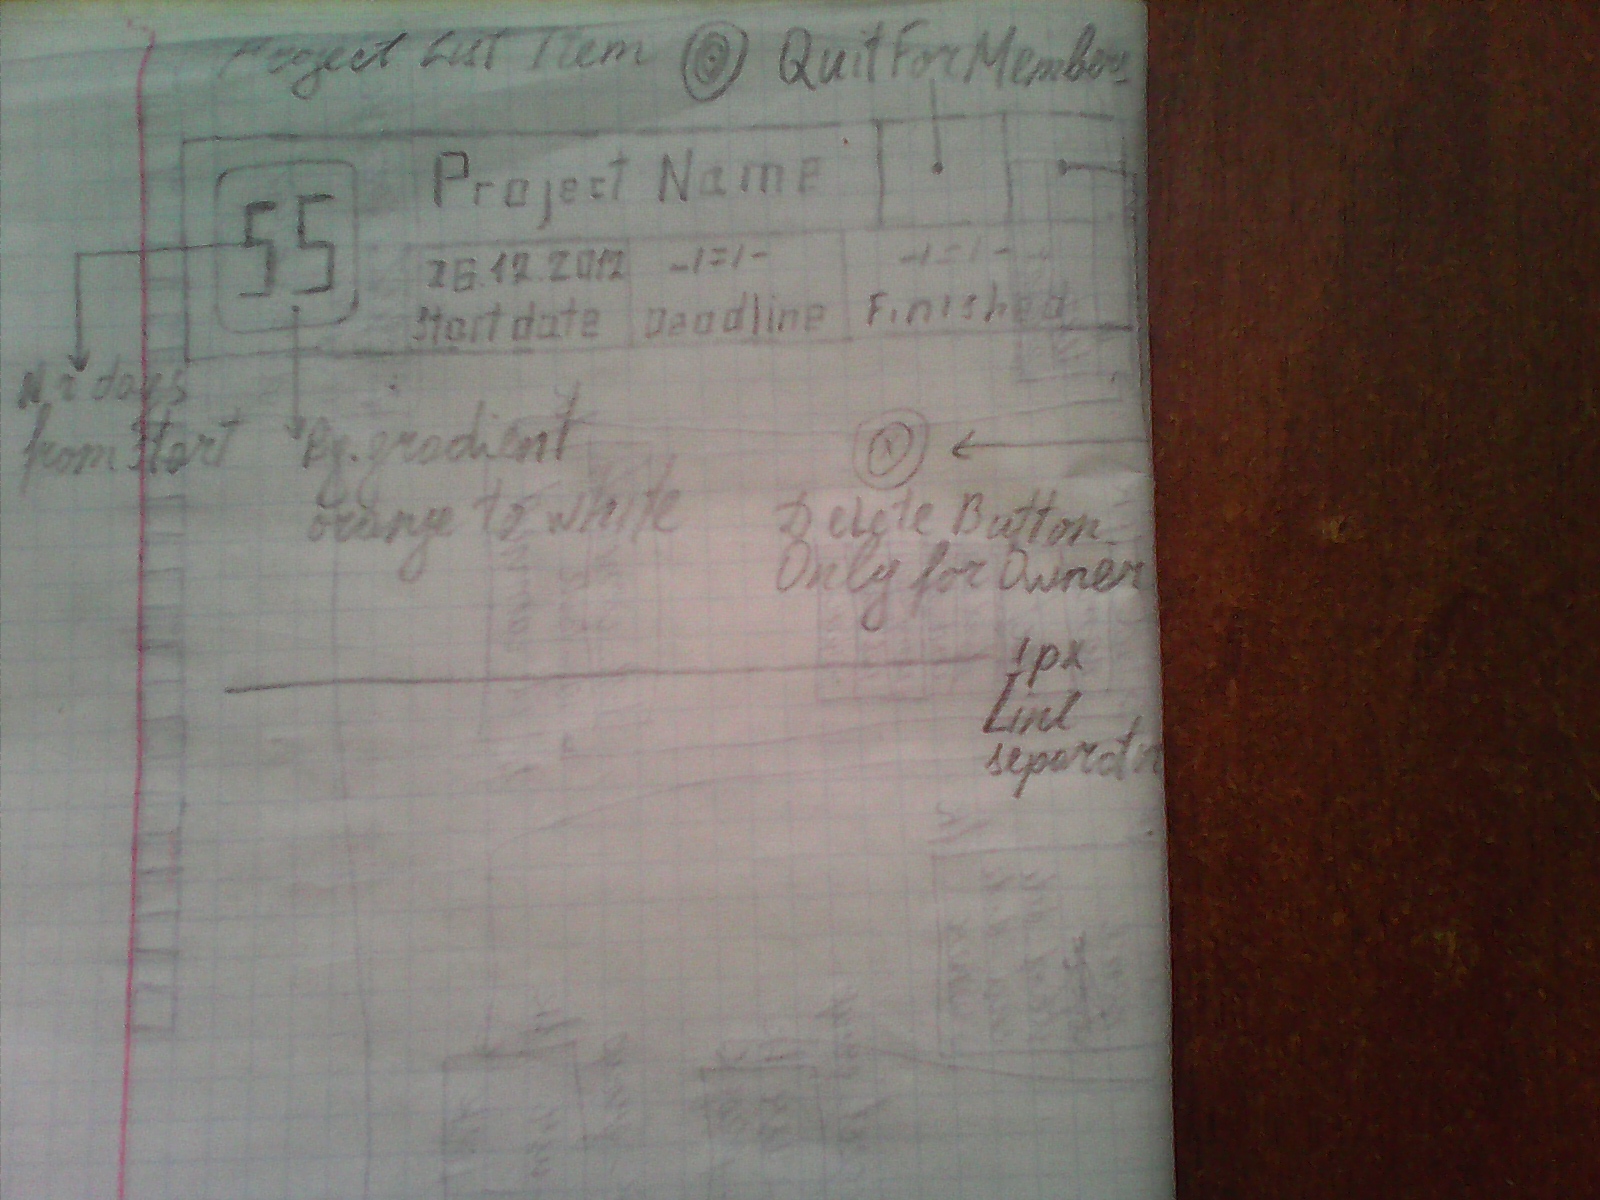 Project List Item QuitForMember
55
Project Name
26.12.2012 -1=1- -1=1-
Start date Deadline Finished
Nr days
from Start
Bg. gradient
orange to white
X
Delete Button
Only for Owner
1px
Line
separator